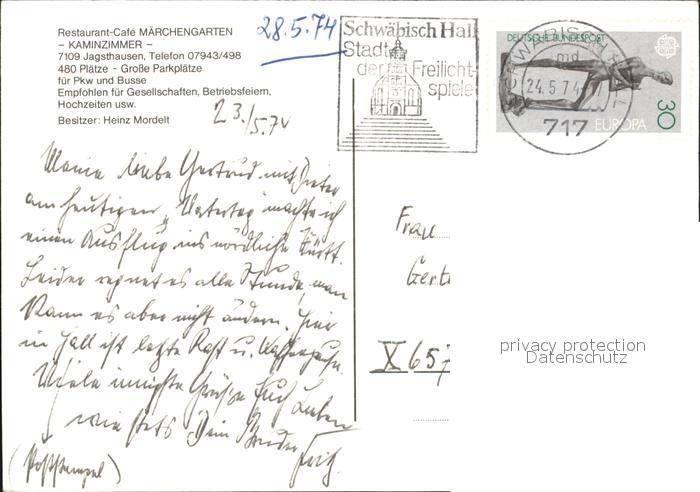 Restaurant-Café MÄRCHENGARTEN
– KAMINZIMMER –
7109 Jagsthausen, Telefon 07943/498
480 Plätze - Große Parkplätze
für Pkw und Busse
Empfohlen für Gesellschaften, Betriebsfeiern,
Hochzeiten usw.
Besitzer: Heinz Mordelt
28.5.74
23./5.74
Schwäbisch Hall
Stadt
der Freilicht-
spiele
DEUTSCHE BUNDESPOST
SCHWÄBISCH HALL
md
24.5.74
717
EUROPA
30
Meine liebe Gertrud mit Dieter
am heutigen „Vatertag machte ich
einen Ausflug ins nördliche Württ.
Leider regnet es alle Stunde, man
kann es aber nicht ändern. Hier
in Hall ist letzte Rast u. Kaffeepause.
Viele innigste Grüße Euch Lieben
wie stets Dein Bruder
(Poststempel)
Frau
Gert
X 657
privacy protection
Datenschutz